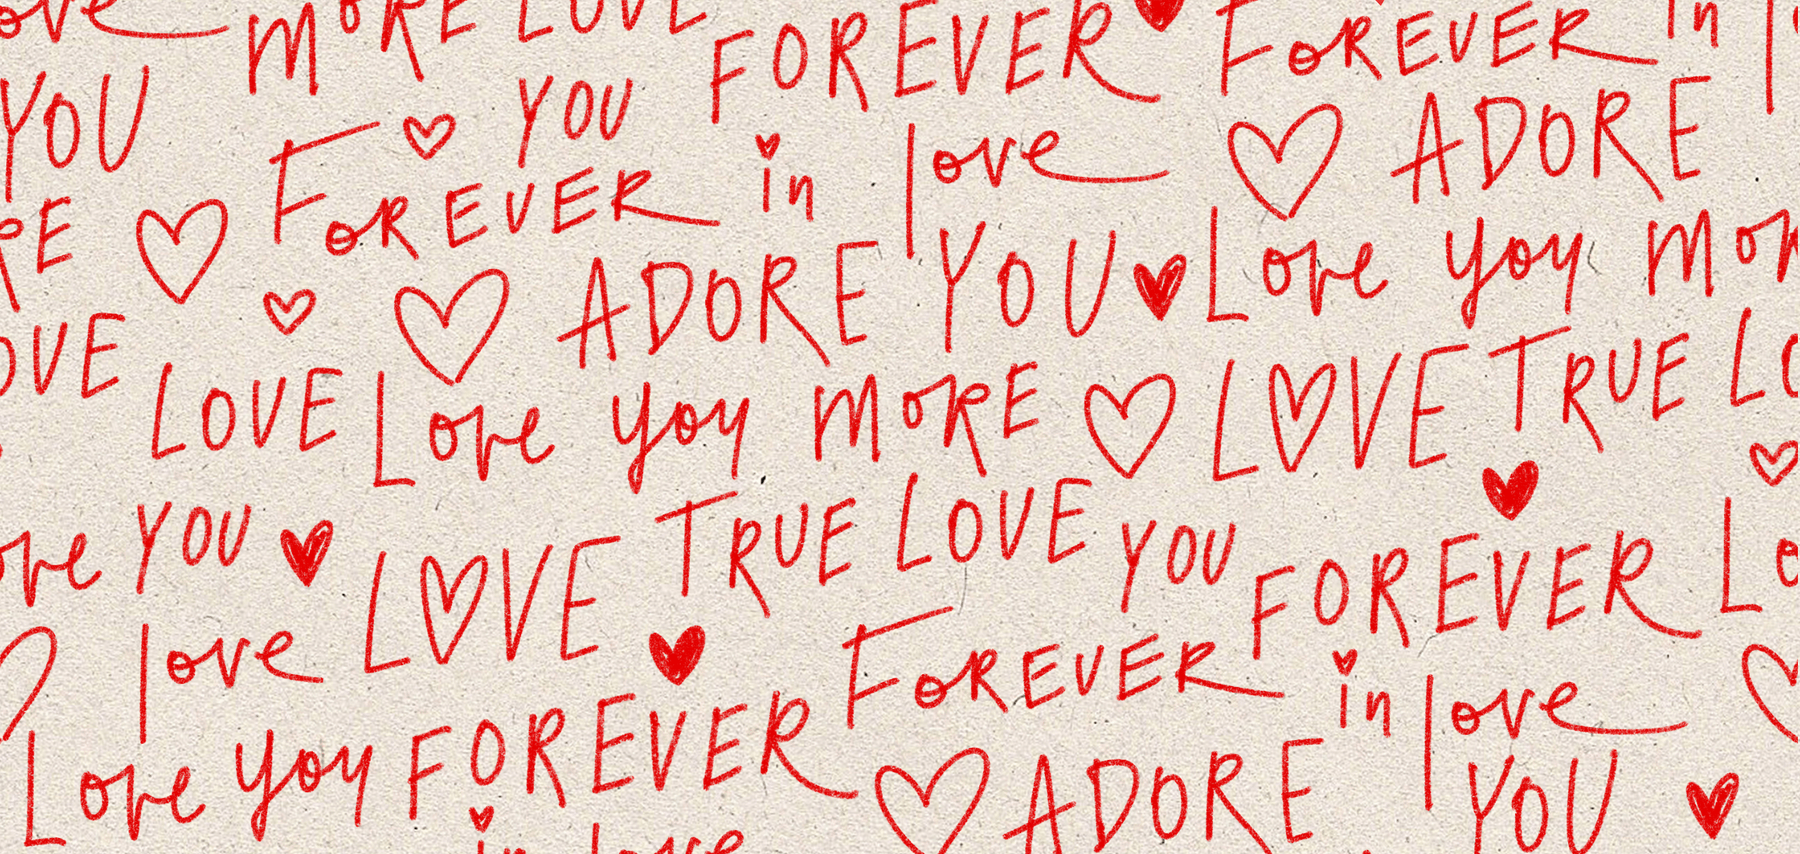 ove MORE LOVE FOREVER FOREVER in
YOU YOU ADORE
FOREVER in love
RE ADORE YOU Love you MOR
OVE LOVE Love you MORE LOVE TRUE LO
ove YOU TRUE LOVE YOU
love LOVE FOREVER FOREVER Lo
Love you FOREVER in love
ADORE YOU
in love